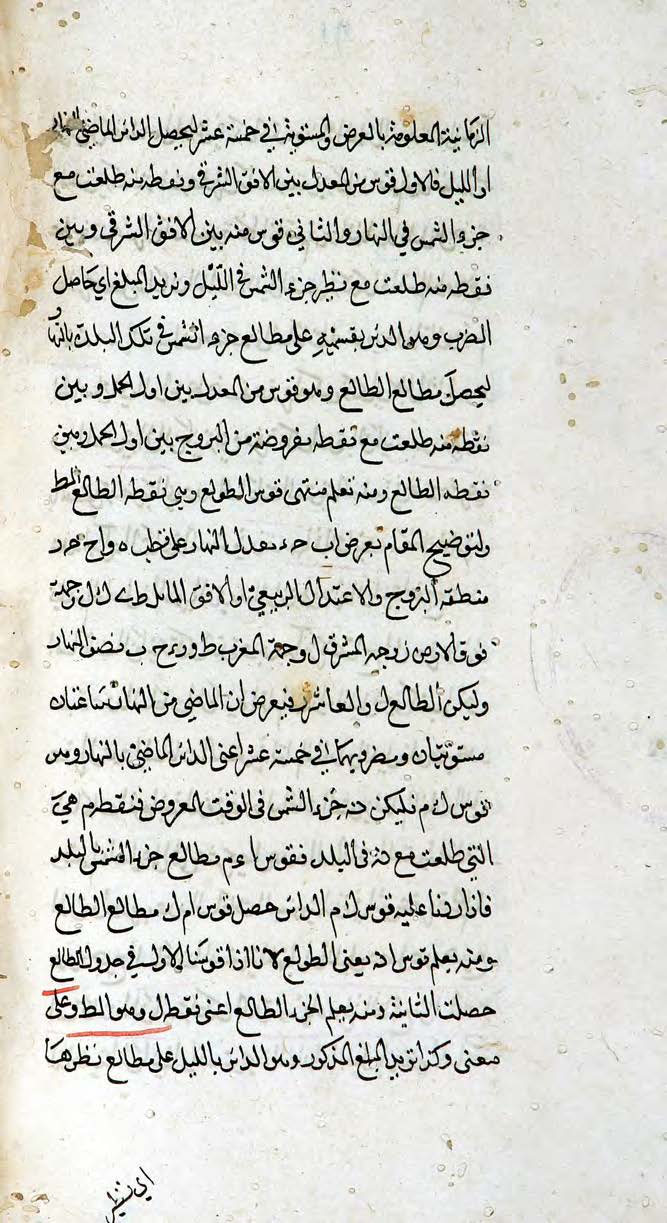 الزمانية المعلومة بالعرض والمستوية في خمسة عشر ليحصل الدائر الماضي
او الليل فالاول قوس من المعدل بين الافق الشرقي ونقطه منه طلعت مع
جزء الشمس في النهار والثاني قوس منه بين الافق الشرقي وبين
نقطه منه طلعت مع نظير جزء الشمس في الليل ونزيد المبلغ اي حاصل
الضرب وهو الدائر بقسميه على مطالع جزء الشمس في تلك البلدة بالنهار
ليحصل مطالع الطالع وهو قوس من المعدل بين اول الحمل وبين
نقطه منه طلعت مع نقطه مفروضة من البروج بين اول الحمل وبين
نقطه الطالع ومنه نعلم منتهى قوس الطولع وهي نقطة الطالع المط
ولتوضيح المقام نعرض اب حء معدل النهار على قطب ه واح
منطقه البروج والاعتدال الربيعي او الافق المايل طى ك ل وجهة
فوق الارض ز وجهه المشرق ل وجهة المغرب ط وى ح ب نصف النهار
وليكن الطالع ل والعاشر فنعرض ان الماضي من النهار ساعتان
مستويتان ومضروبهما في خمسة عشر اعني الدائر الماضي بالنهار وهو
قوس ك م فليكن نه جزء الشمس في الوقت المعروض فنقطه م هي
التي طلعت مع نه في البلد فقوس ا م مطالع جزء الشمس بالبلد
فاذا زدنا عليه قوس ك م الدائر حصل قوس ام ك مطالع الطالع
ومنه يعلم قوس اد يعني الطولع لانا اذا قوسنا الاول في جدول المطالع
حصلت الثانية ومنه يعلم الجزء الطالع اعني نقطه ل وهو المط وعلى
معنى وكذا نزيد المبلغ المذكور وهو الدائر بالليل على مطالع نظيرها